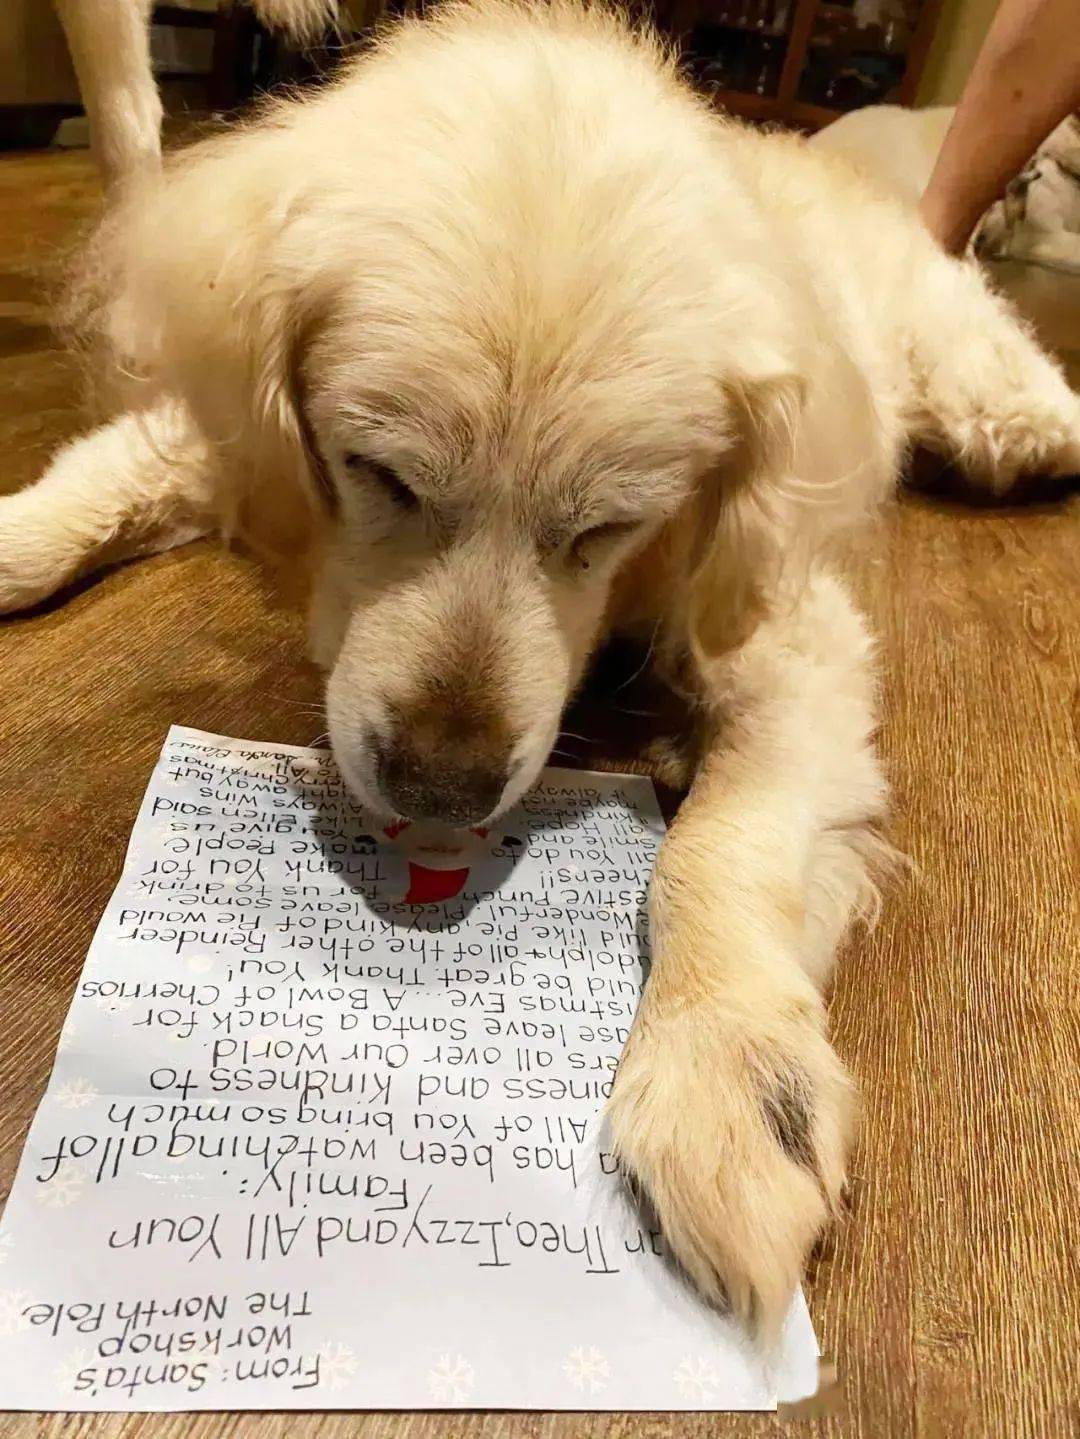 From: Santa's
Workshop
The North Pole
r Theo, Izzy and All Your
Family:
a has been watching all of
All of You bring so much
piness and Kindness to
ers all over Our World.
ase leave Santa a Snack for
istmas Eve... A Bowl of Cherrios
ould be great. Thank You!
udolph + all of the other Reindeer
ould like Pie, any kind of Pie would
e Wonderful. Please leave some
estive Punch for us to drink
heers!! Thank You for
all You do to make People
smile and You give us
all Hope. Like Ellen said
"kindness Always Wins
maybe not right away but
it always erry Christmas
To All.
Santa Claus